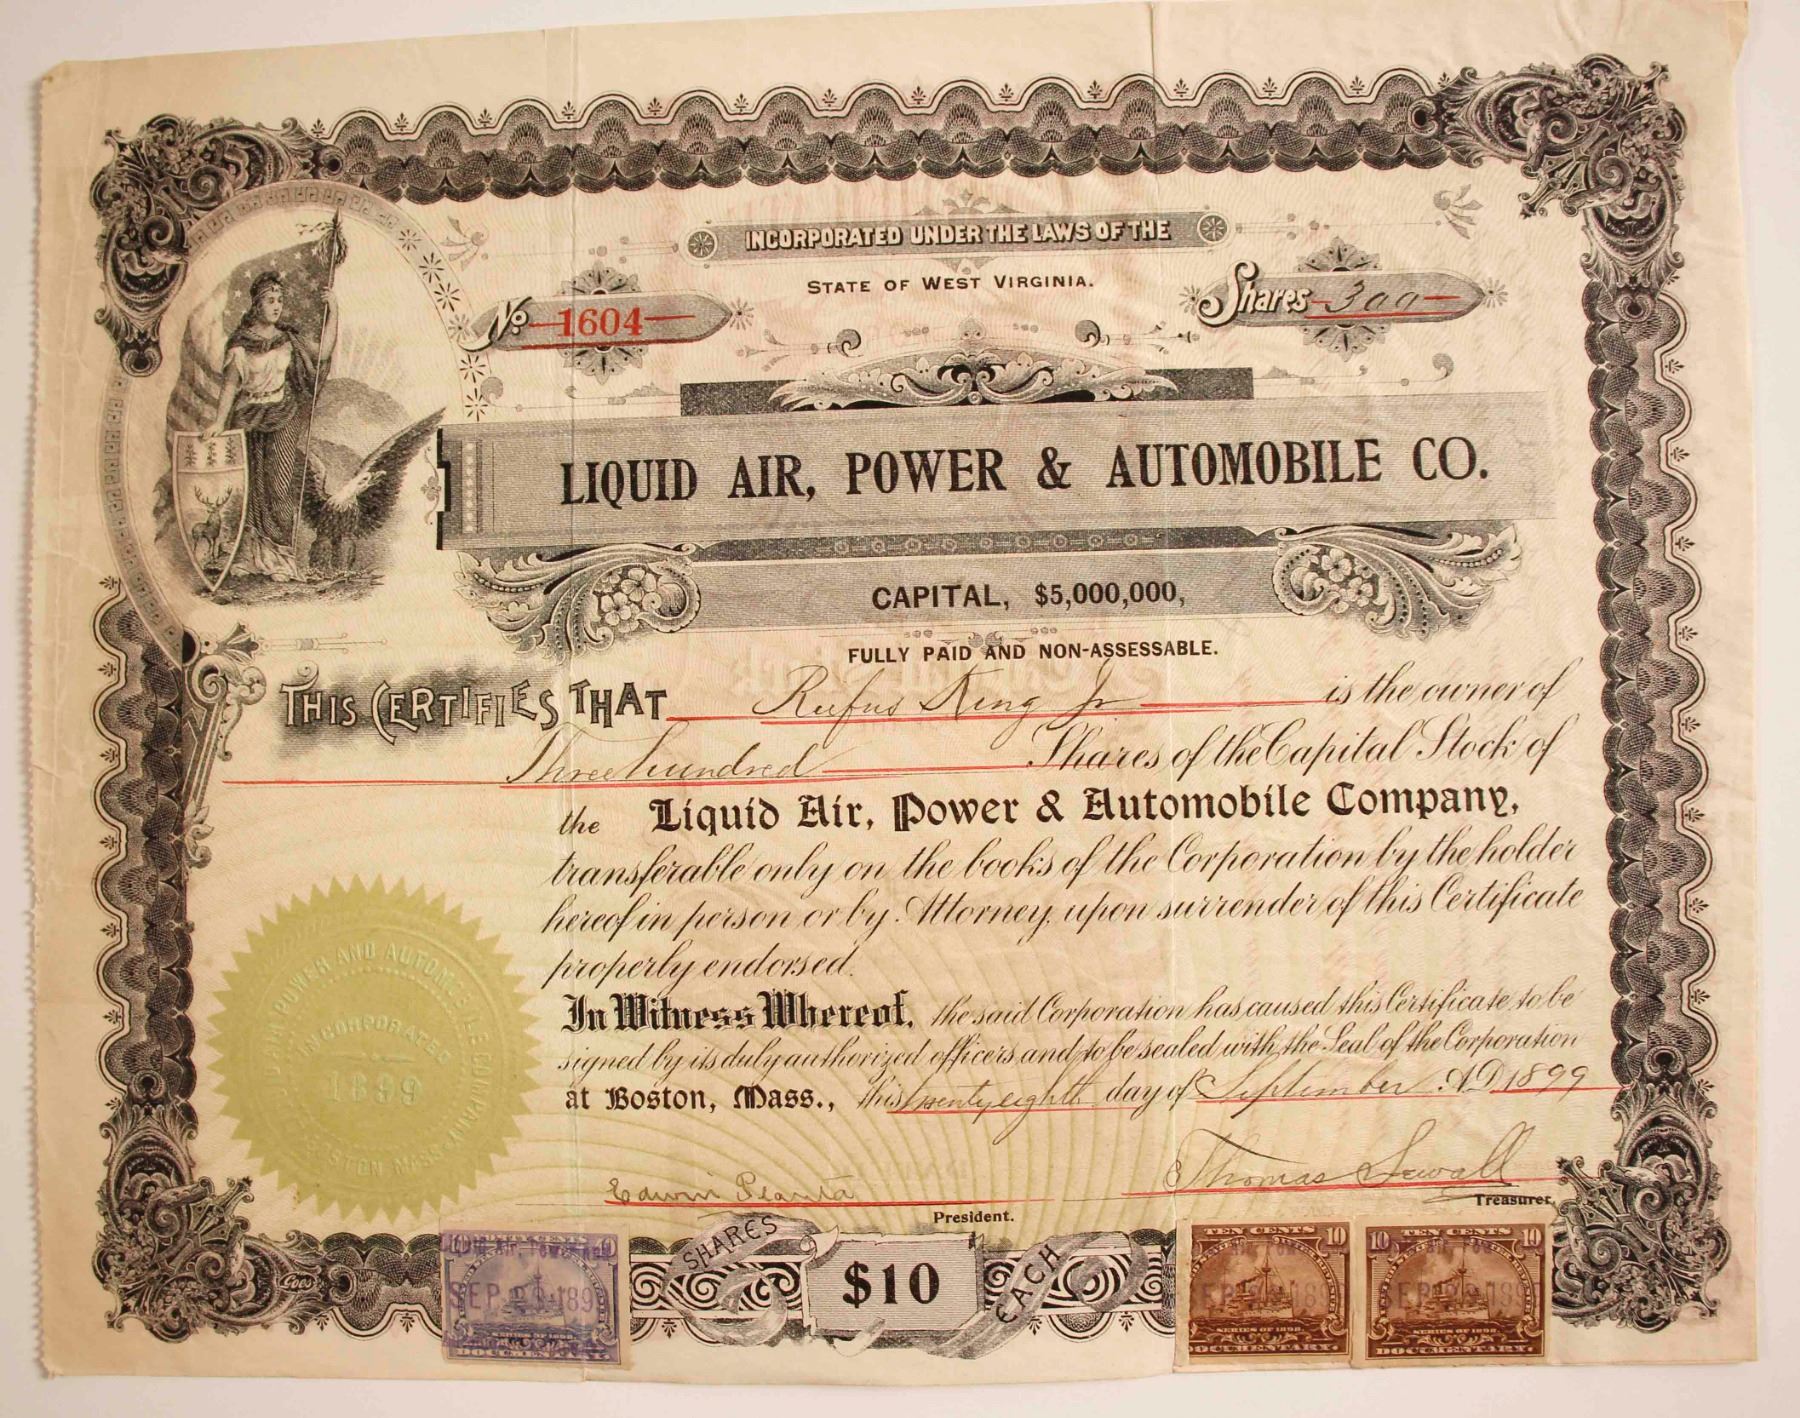 INCORPORATED UNDER THE LAWS OF THE
STATE OF WEST VIRGINIA.
No. 1604
Shares 300
LIQUID AIR, POWER & AUTOMOBILE CO.
CAPITAL, $5,000,000,
FULLY PAID AND NON-ASSESSABLE.
THIS CERTIFIES THAT Rufus King Jr is the owner of
Three hundred Shares of the Capital Stock of
the Liquid Air, Power & Automobile Company,
transferable only on the books of the Corporation by the holder
hereof in person or by Attorney, upon surrender of this Certificate
properly endorsed.
In Witness Whereof, the said Corporation has caused this Certificate to be
signed by its duly authorized officers and to be sealed with the Seal of the Corporation
at Boston, Mass., this twenty eighth day of September A.D. 1899
Thomas Sewall
Treasurer.
Edwin Planta
President.
AIR POWER AND AUTOMOBILE COMPANY
INCORPORATED
1899
BOSTON MASS.
SHARES $10 EACH
Goes
10 10
SEP 28 1899
SERIES OF 1898
DOCUMENTARY
TEN CENTS 10
SEP 28 1899
SERIES OF 1898
DOCUMENTARY
10 TEN CENTS 10
SEP 28 189
SERIES OF 1898
DOCUMENTARY